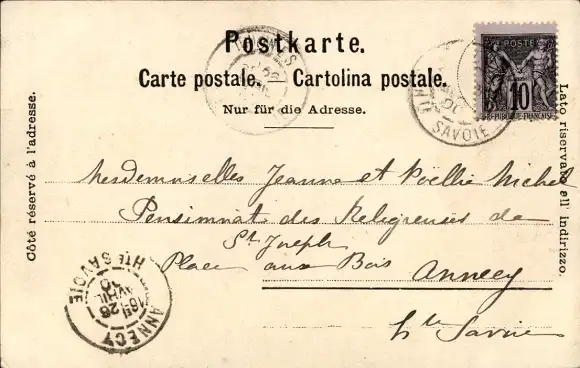 Postkarte.
Carte postale. — Cartolina postale.
Nur für die Adresse.
Côté réservé à l'adresse.
Lato riservato all' indirizzo.
POSTE
10
REPUBLIQUE FRANCAISE
HTE SAVOIE
Mesdemoiselles Jeanne et Noëllie Michel
Pensionnat des Religieuses de
St Joseph
Place aux Bois Annecy
hte Savoie
ANNECY
26
AVRIL
HTE SAVOIE